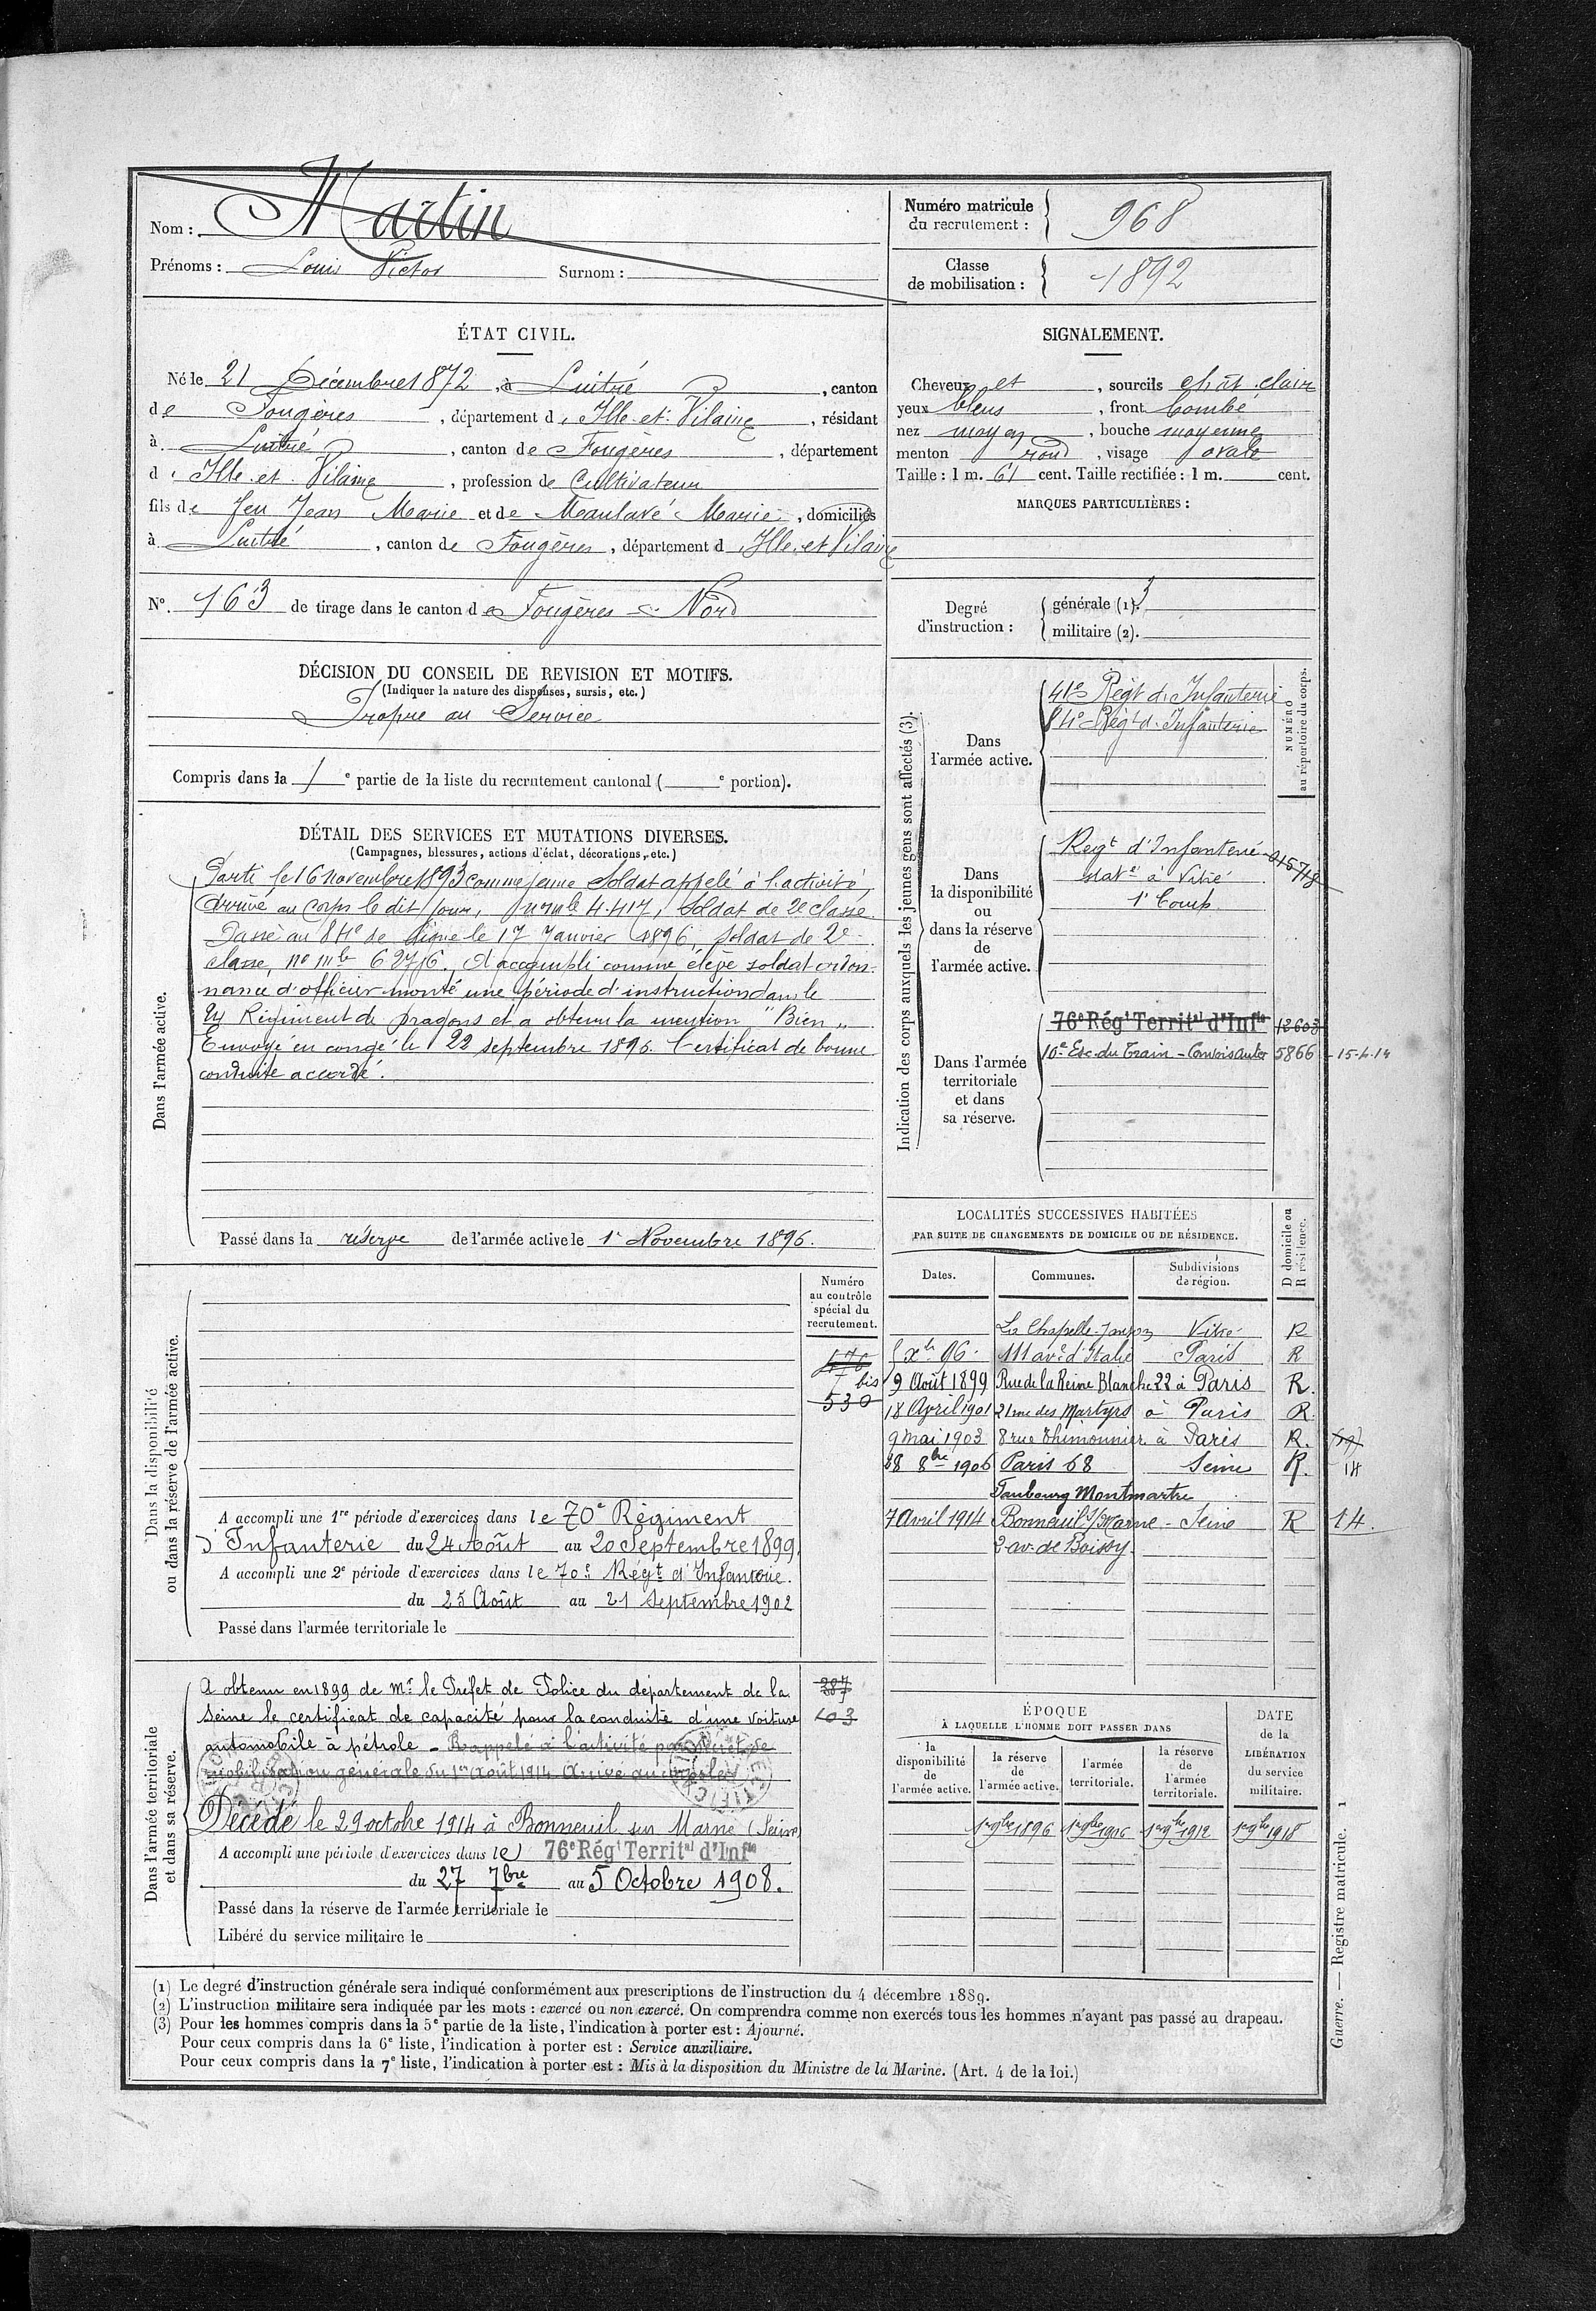 Nom : Martin
Prénoms : Louis Victor Surnom :
Numéro matricule du recrutement : 968
Classe de mobilisation : 1892
ÉTAT CIVIL.
Né le 21 Décembre 1872, à Luitré, canton
de Fougères, département d'Ille-et-Vilaine, résidant
à Luitré, canton de Fougères, département
d'Ille-et-Vilaine, profession de Cultivateur
fils de feu Jean Marie et de Maulavé Marie, domiciliés
à Luitré, canton de Fougères, département d'Ille-et-Vilaine
N° 163 de tirage dans le canton de Fougères-Nord
SIGNALEMENT.
Cheveux et, sourcils chât. clair
yeux bleus, front bombé
nez moyen, bouche moyenne
menton rond, visage ovale
Taille : 1 m. 61 cent. Taille rectifiée : 1 m. cent.
MARQUES PARTICULIÈRES :
Degré d'instruction : générale (1). 3
militaire (2).
DÉCISION DU CONSEIL DE REVISION ET MOTIFS.
(Indiquer la nature des dispenses, sursis, etc.)
Propre au Service
Compris dans la 1e partie de la liste du recrutement cantonal ( e portion).
DÉTAIL DES SERVICES ET MUTATIONS DIVERSES.
(Campagnes, blessures, actions d'éclat, décorations, etc.)
Dans l'armée active.
Parti le 16 novembre 1893 comme jeune Soldat appelé à l'activité,
Arrivé au Corps le dit jour, 4.417, Soldat de 2e classe.
Passé au 84e de ligne le 17 Janvier 1896, Soldat de 2e
classe, no mle 6276. A accompli comme élève soldat ordon-
nance d'officier monté une période d'instruction dans le
Régiment de dragons et a obtenu la mention "Bien"
Envoyé en congé le 22 septembre 1896. Certificat de bonne
conduite accordé.
Passé dans la réserve de l'armée active le 1er Novembre 1896.
Indication des corps auxquels les jeunes gens sont affectés (3).
NUMÉRO au répertoire du corps.
Dans l'armée active.
41e Régt d'Infanterie
84e Régt d'Infanterie
Dans la disponibilité ou dans la réserve de l'armée active.
Regt d'Infanterie
stat. à Vitré
1e Coup.
Dans l'armée territoriale et dans sa réserve.
76e Régt Territal d'Infie 12603
10e Esc. du Train - Convois autos 5866 - 15-4-14
LOCALITÉS SUCCESSIVES HABITÉES
PAR SUITE DE CHANGEMENTS DE DOMICILE OU DE RÉSIDENCE.
Dates. Communes. Subdivisions de région. D domicile ou R résidence.
La Chapelle-Janson Vitré R
Xbre 96 111 ave d'Italie Paris R
9 Août 1899 Rue de la Reine Blanche 22 à Paris R.
18 Avril 1901 21 rue des Martyrs à Paris R.
9 mai 1903 8 rue Thimonnier à Paris R.
8bre 1906 Paris 68 Seine R. 14
Faubourg Montmartre
7 Avril 1914 Bonneuil s/Marne - Seine R 14.
2 av. de Boissy
Dans la disponibilité ou dans la réserve de l'armée active.
Numéro au contrôle spécial du recrutement.
476
bis
530
A accompli une 1re période d'exercices dans le 70e Régiment
d'Infanterie du 24 Août au 20 Septembre 1899.
A accompli une 2e période d'exercices dans le 70e Régt d'Infanterie.
du 25 Août au 21 Septembre 1902
Passé dans l'armée territoriale le
Dans l'armée territoriale et dans sa réserve.
A obtenu en 1899 de Mr. le Préfet de Police du département de la
Seine le certificat de capacité pour la conduite d'une voiture
automobile à pétrole - Rappelé à l'activité par décret de
mobilisation générale du 1er Août 1914.
387
103
Décédé le 29 octobre 1914 à Bonneuil sur Marne (Seine)
A accompli une période d'exercices dans le 76e Régt Territal d'Infie
du 27 7bre au 5 Octobre 1908.
Passé dans la réserve de l'armée territoriale le
Libéré du service militaire le
ÉPOQUE
À LAQUELLE L'HOMME DOIT PASSER DANS
la disponibilité de l'armée active. la réserve de l'armée active. l'armée territoriale. la réserve de l'armée territoriale.
DATE de la LIBÉRATION du service militaire.
1er 9bre 1896 1er 9bre 1906 1er 9bre 1912 1er 9bre 1918
(1) Le degré d'instruction générale sera indiqué conformément aux prescriptions de l'instruction du 4 décembre 1889.
(2) L'instruction militaire sera indiquée par les mots : exercé ou non exercé. On comprendra comme non exercés tous les hommes n'ayant pas passé au drapeau.
(3) Pour les hommes compris dans la 5e partie de la liste, l'indication à porter est : Ajourné.
Pour ceux compris dans la 6e liste, l'indication à porter est : Service auxiliaire.
Pour ceux compris dans la 7e liste, l'indication à porter est : Mis à la disposition du Ministre de la Marine. (Art. 4 de la loi.)
Guerre. — Registre matricule. 1